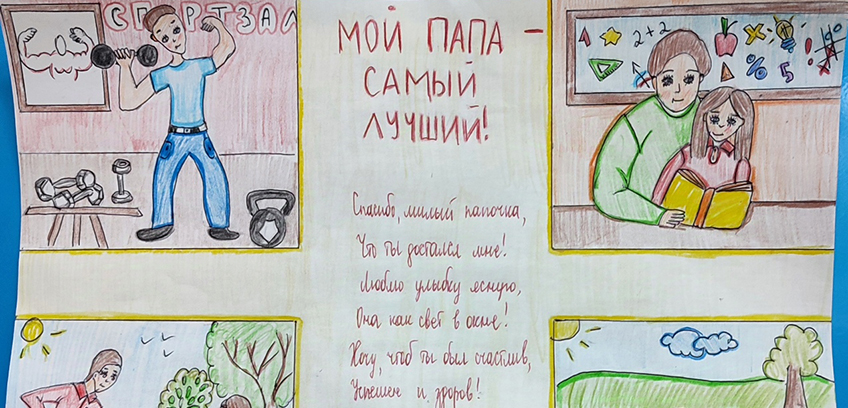 СПОРТЗАЛ
МОЙ ПАПА –
САМЫЙ
ЛУЧШИЙ!
2+2
5!
Спасибо, милый папочка,
Что ты достался мне!
Люблю улыбку ясную,
Она как свет в окне!
Хочу, чтоб ты был счастлив,
Успешен и здоров!